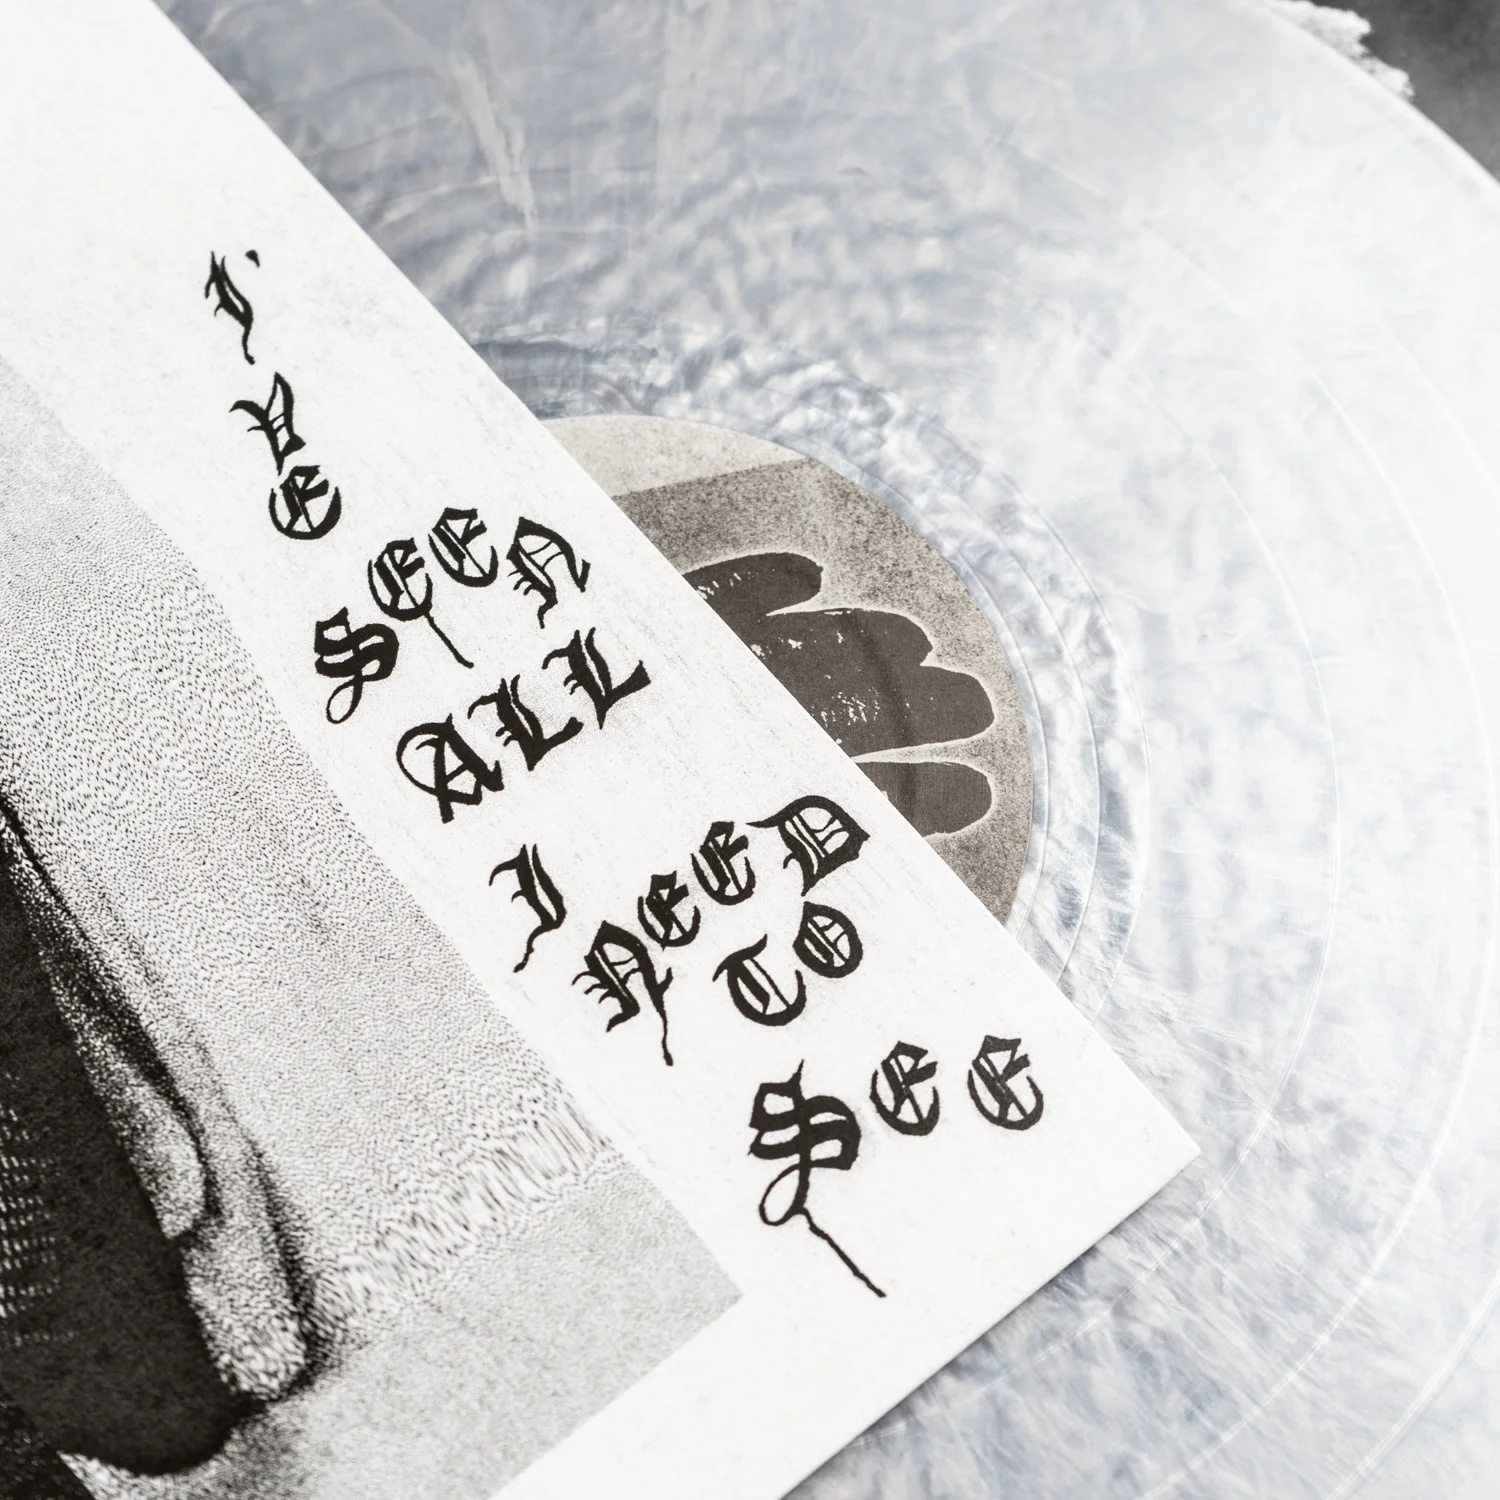 I'
VE
SEEN
ALL
I
NEED
TO
SEE